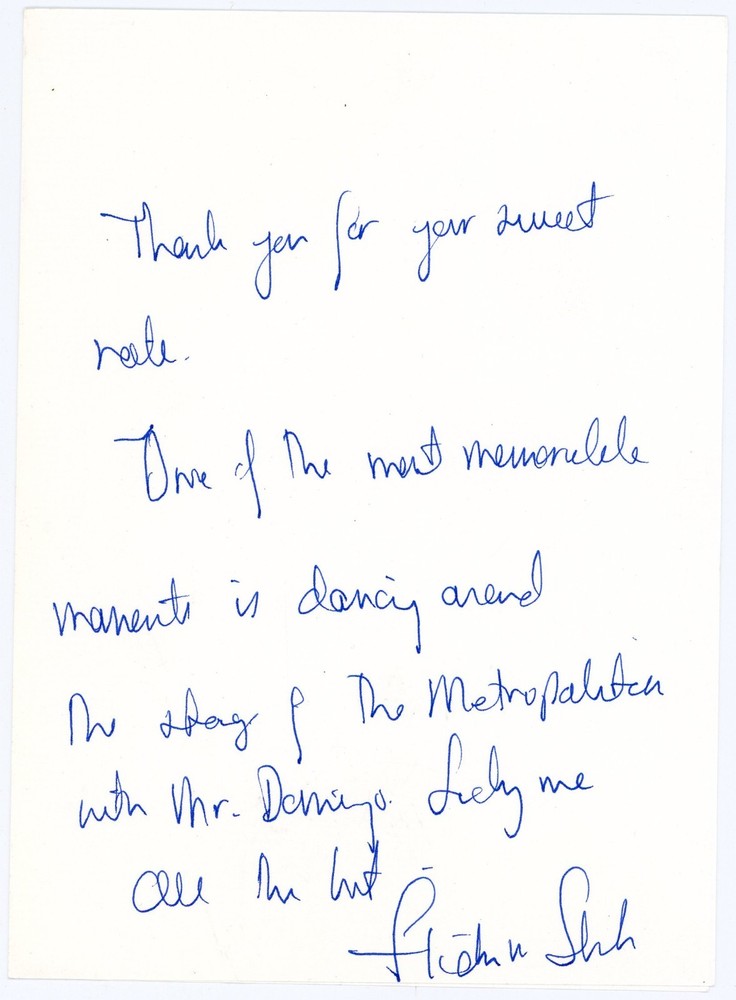 Thank you for your sweet
note.
One of the most memorable
moments is dancing around
the stage of the Metropolitan
with Mr. Domingo. Lucky me
All the best